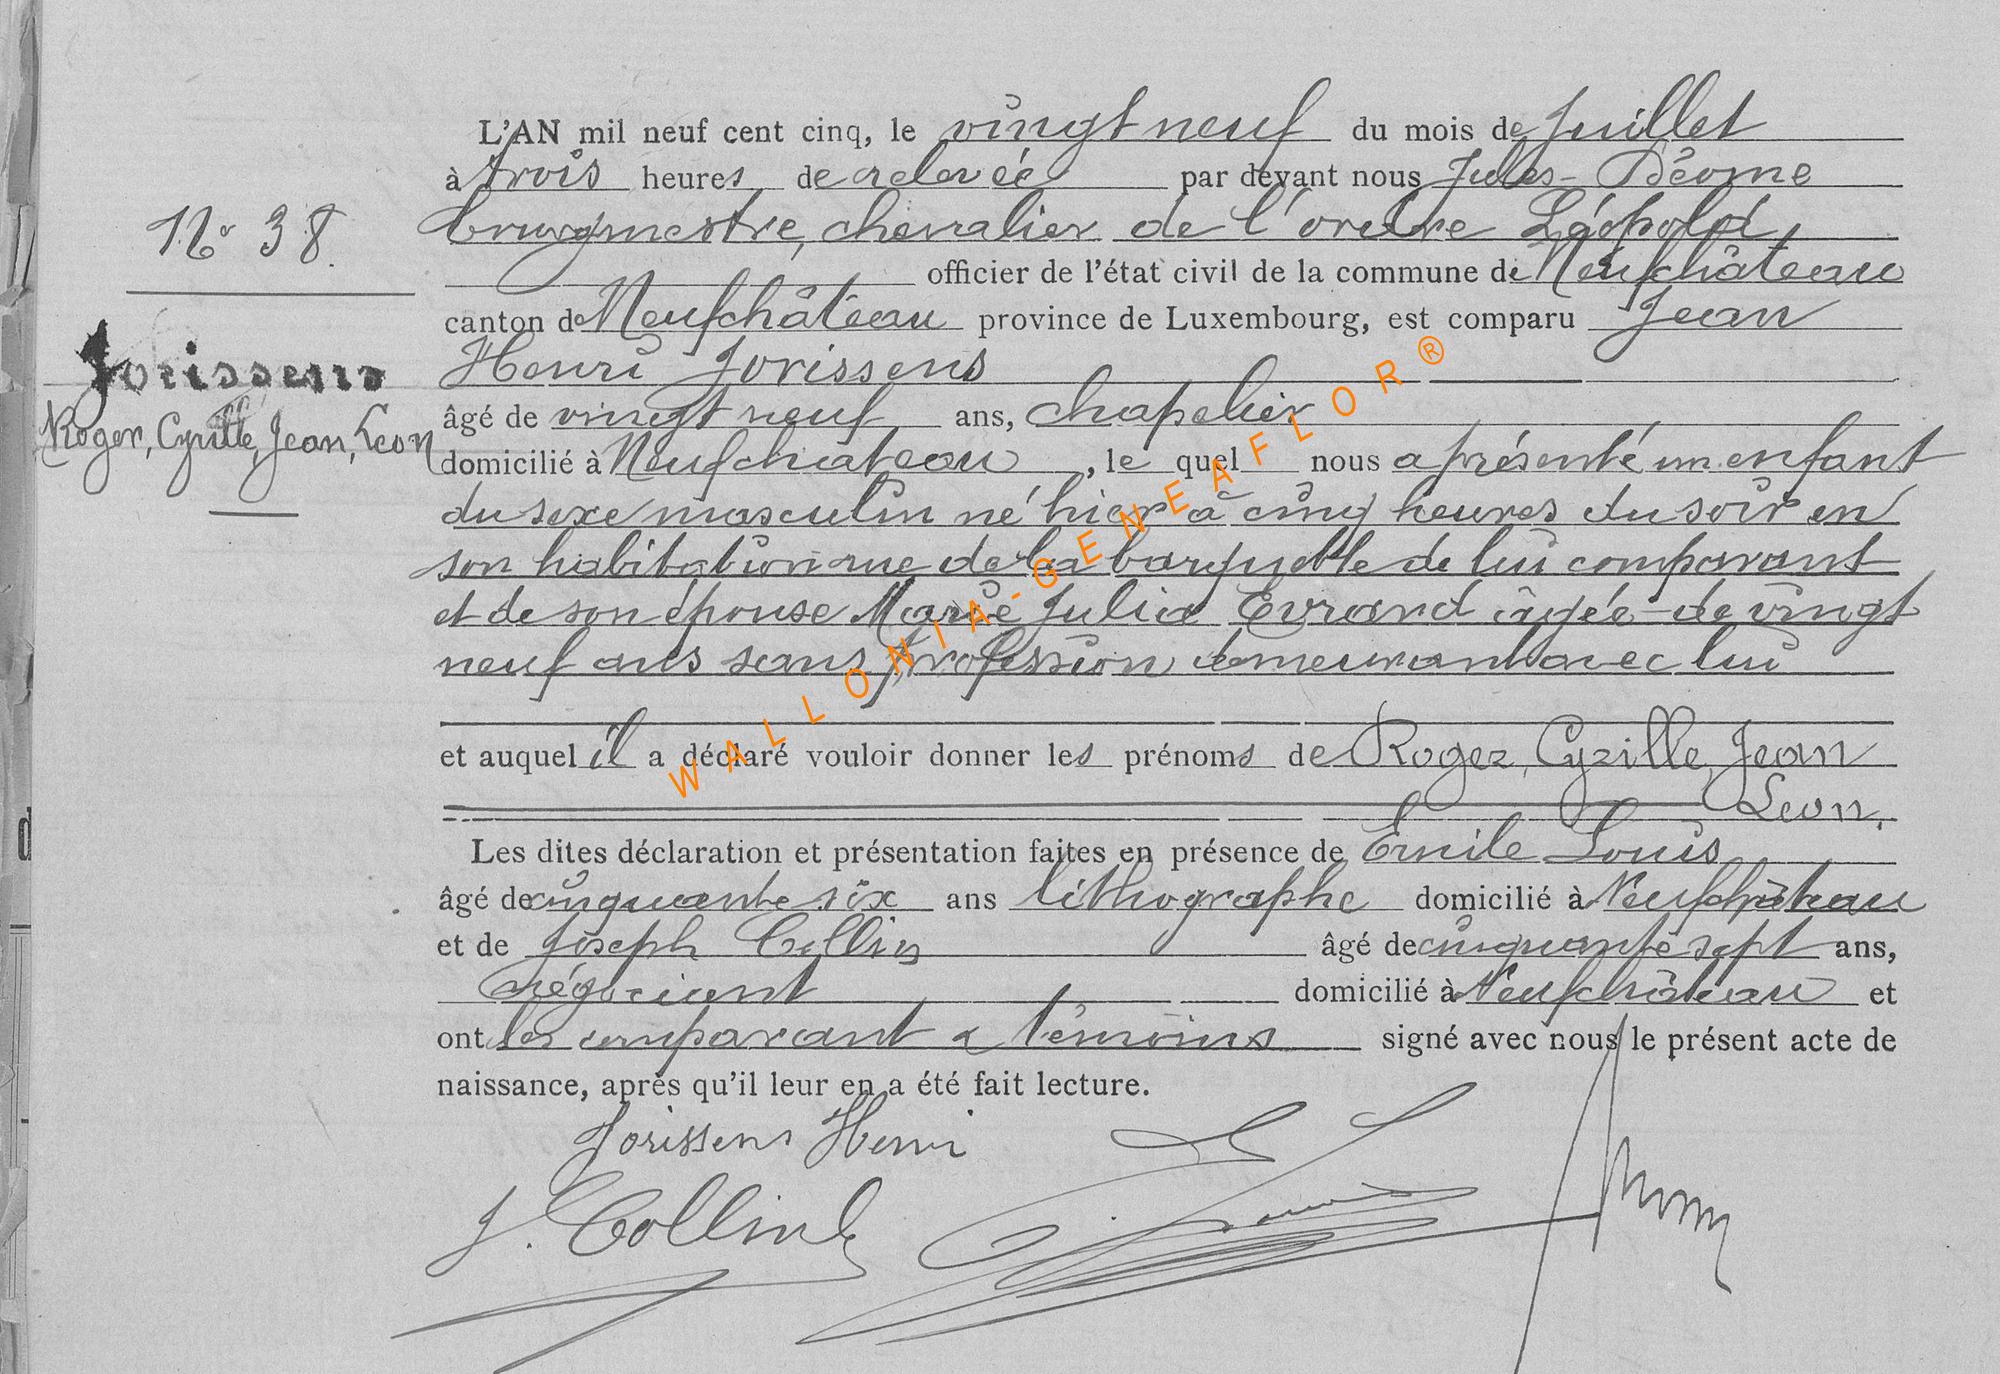 L'AN mil neuf cent cinq, le vingt neuf du mois de Juillet
à trois heures de relevée par devant nous Jules
N° 38
bourgmestre, chevalier de l'ordre Léopold,
officier de l'état civil de la commune de Neufchâteau
canton de Neufchâteau province de Luxembourg, est comparu Jean
Jorissens
Henri Jorissens
âgé de vingt neuf ans, chapelier
Roger, Cyrille, Jean, Leon
domicilié à Neufchateau, le quel nous a présenté un enfant
du sexe masculin né hier à cinq heures du soir en
son habitation rue de la barquette de lui comparant
et de son épouse Marie Julia Evrard âgée de vingt
neuf ans sans profession demeurant avec lui
et auquel il a déclaré vouloir donner les prénoms de Roger, Cyrille, Jean
Leon.
Les dites déclaration et présentation faites en présence de Emile Louis
âgé de cinquante six ans lithographe domicilié à Neufchâteau
et de Joseph Collin âgé de cinquante sept ans,
négociant domicilié à Neufchâteau et
ont les comparant & témoins signé avec nous le présent acte de
naissance, après qu'il leur en a été fait lecture.
Jorissens Henri
J. Collin
WALLONIA-GENEAFLOR®